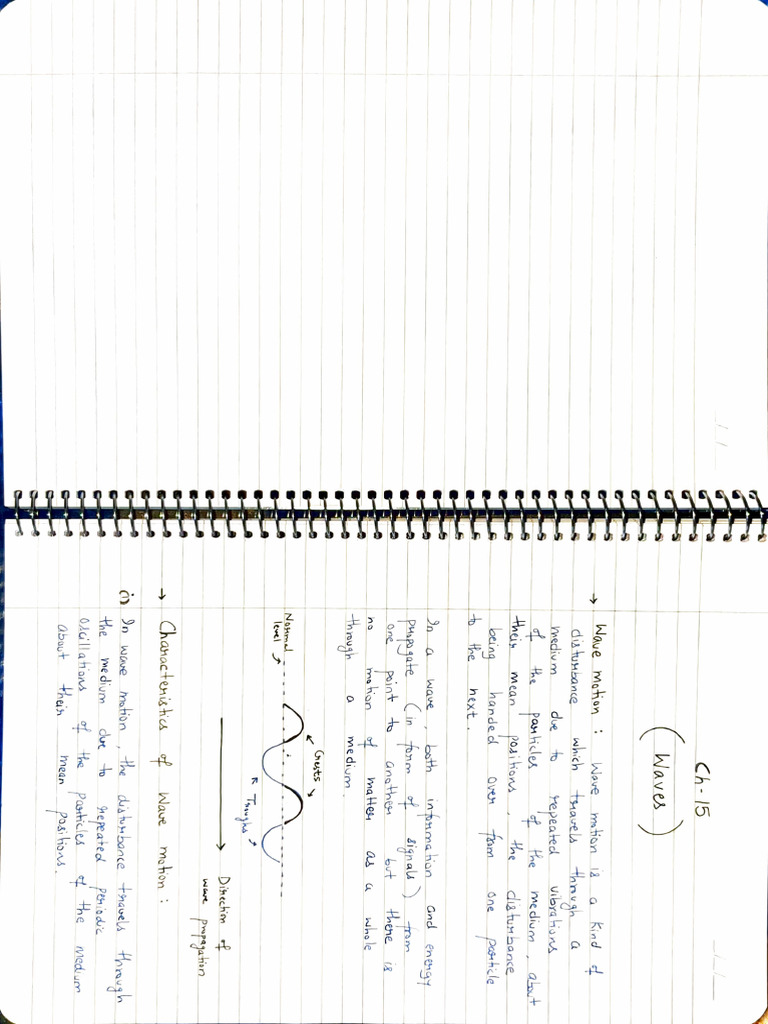 Ch-15
(Waves)
→ Wave motion : Wave motion is a kind of
disturbance which travels through a
medium due to repeated vibrations
of the particles of the medium, about
their mean positions, the disturbance
being handed over from one particle
to the next.
In a wave, both information and energy
propagate (in form of signals) from
one point to another but there is
no motion of matter as a whole
through a medium.
Crests
Normal
level
Troughs
Direction of
wave propagation
→ Characteristics of Wave motion :
(i) In wave motion, the disturbance travels through
the medium due to repeated periodic
oscillations of the particles of the medium
about their mean positions.